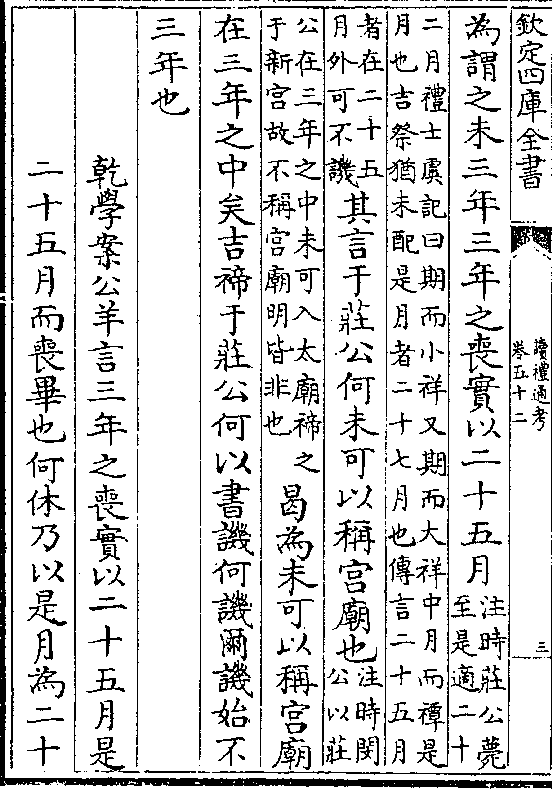 欽定四庫全書
讀禮通考
卷五十二
三
為謂之未三年三年之喪實以二十五月注時莊公薨
至是適二十
二月禮士虞記曰期而小祥又期而大祥中月而禫是
月也吉祭猶未配是月者二十七月也傳言二十五月
者在二十五
月外可不譏其言于莊公何未可以稱宮廟也注時閔
公以莊
公在三年之中未可入太廟禘之
于新宮故不稱宮廟明皆非也曷為未可以稱宮廟
在三年之中矣吉禘于莊公何以書譏何譏爾譏始不
三年也
乾學案公羊言三年之喪實以二十五月是
二十五月而喪畢也何休乃以是月為二十